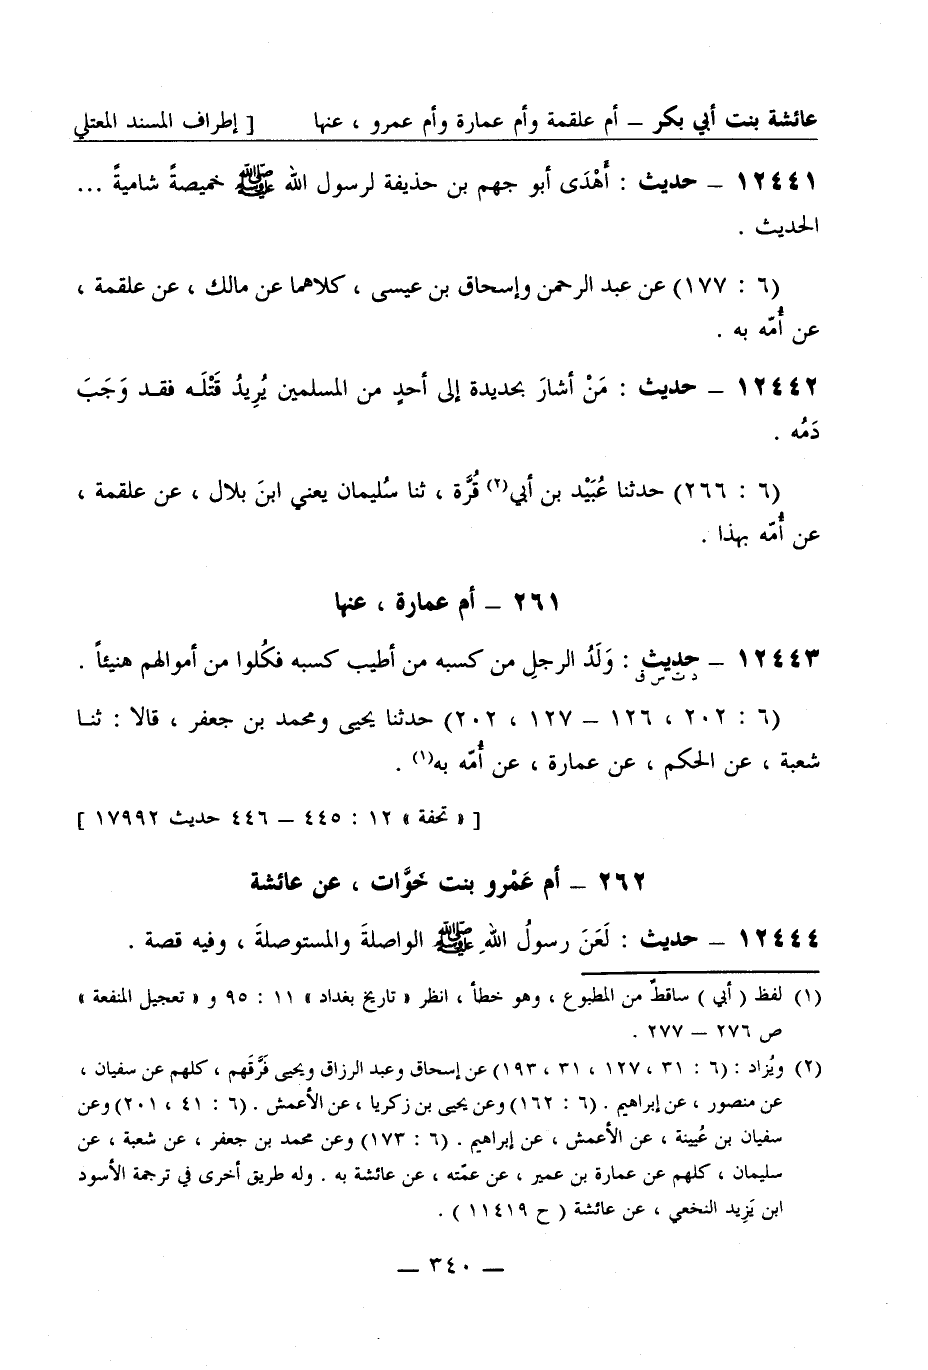 عائشة بنت أبي بكر – أم علقمة وأم عمارة وأم عمرو ، عنها [ إطراف المسند المعتلي
١٢٤٤١ – حديث : أَهْدَى أبو جهم بن حذيفة لرسول الله ﷺ خميصةً شاميةً ...
الحديث .
(٦ : ١٧٧) عن عبد الرحمن وإسحاق بن عيسى ، كلاهما عن مالك ، عن علقمة ،
عن أُمّه به .
١٢٤٤٢ – حديث : مَنْ أشارَ بحديدة إلى أحدٍ من المسلمين يُريدُ قَتْلَه فقد وَجَبَ
دَمُه .
(٦ : ٢٦٦) حدثنا عُبَيْد بن أبي(٢) قُرَّة ، ثنا سُليمان يعني ابنَ بلال ، عن علقمة ،
عن أُمّه بهذا .
٢٦١ – أم عمارة ، عنها
١٢٤٤٣ – حديث : وَلَدُ الرجلِ من كسبه من أطيب كسبه فكُلوا من أموالهم هنيئاً .
د ت س ق
(٦ : ٢٠٢ ، ١٢٦ – ١٢٧ ، ٢٠٢) حدثنا يحيى ومحمد بن جعفر ، قالا : ثنا
شعبة ، عن الحكم ، عن عمارة ، عن أُمّه به(١) .
[ « تحفة » ١٢ : ٤٤٥ – ٤٤٦ حديث ١٧٩٩٢ ]
٢٦٢ – أم عَمْرو بنت خَوَّات ، عن عائشة
١٢٤٤٤ – حديث : لَعَنَ رسولُ اللهِ ﷺ الواصلةَ والمستوصلةَ ، وفيه قصة .
(١) لفظ ( أبي ) ساقطٌ من المطبوع ، وهو خطأ ، انظر « تاريخ بغداد » ١١ : ٩٥ و « تعجيل المنفعة »
ص ٢٧٦ – ٢٧٧ .
(٢) ويُزاد : (٦ : ٣١ ، ١٢٧ ، ٣١ ، ١٩٣) عن إسحاق وعبد الرزاق ويحيى فَرَّقَهم ، كلهم عن سفيان ،
عن منصور ، عن إبراهيم . (٦ : ١٦٢) وعن يحيى بن زكريا ، عن الأعمش . (٦ : ٤١ ، ٢٠١) وعن
سفيان بن عُيينة ، عن الأعمش ، عن إبراهيم . (٦ : ١٧٣) وعن محمد بن جعفر ، عن شعبة ، عن
سليمان ، كلهم عن عمارة بن عمير ، عن عمّته ، عن عائشة به . وله طريق أخرى في ترجمة الأسود
ابن يَزِيد النخعي ، عن عائشة ( ح ١١٤١٩ ) .
– ٣٤٠ –